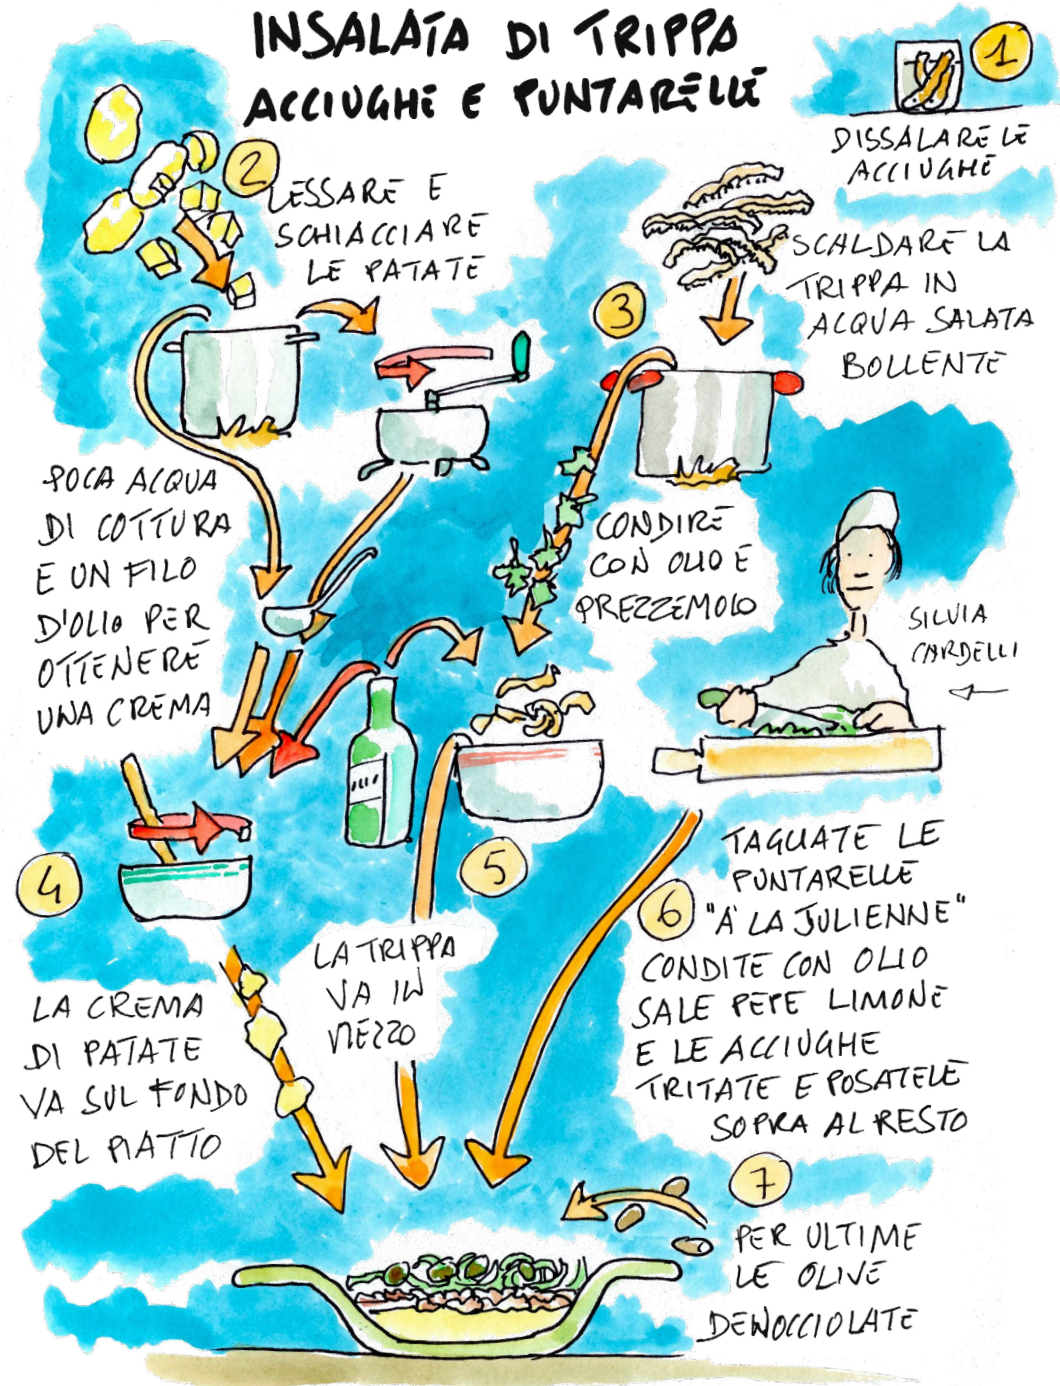 INSALATA DI TRIPPA
ACCIUGHE E PUNTARELLE
1
DISSALARE LE
ACCIUGHE
2
LESSARE E
SCHIACCIARE
LE PATATE
3
SCALDARE LA
TRIPPA IN
ACQUA SALATA
BOLLENTE
POCA ACQUA
DI COTTURA
E UN FILO
D'OLIO PER
OTTENERE
UNA CREMA
CONDIRE
CON OLIO E
PREZZEMOLO
SILVIA
CARDELLI
OLIO
4
LA CREMA
DI PATATE
VA SUL FONDO
DEL PIATTO
5
LA TRIPPA
VA IN
MEZZO
6
TAGLIATE LE
PUNTARELLE
"A' LA JULIENNE"
CONDITE CON OLIO
SALE PEPE LIMONE
E LE ACCIUGHE
TRITATE E POSATELE
SOPRA AL RESTO
7
PER ULTIME
LE OLIVE
DENOCCIOLATE